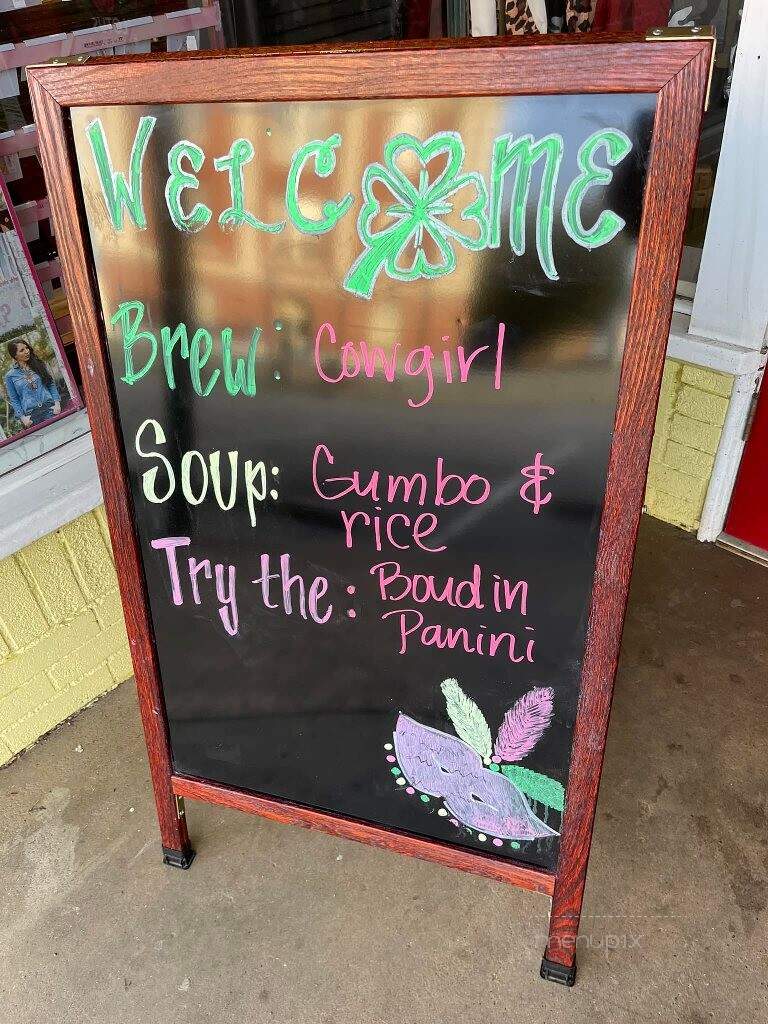 WELCOME
Brew: Cowgirl
Soup: Gumbo &
rice
Try the: Boudin
Panini
menupix